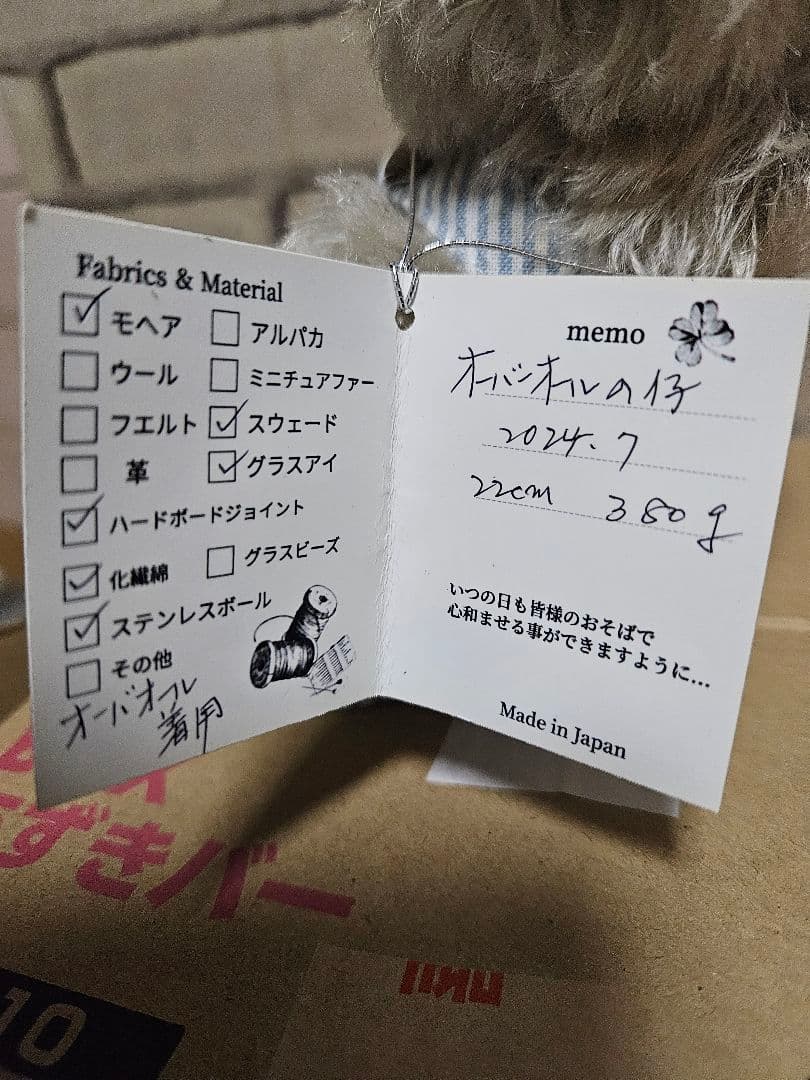 Fabrics & Material
モヘア アルパカ
ウール ミニチュアファー
フエルト スウェード
革 グラスアイ
ハードボードジョイント
化繊綿 グラスビーズ
ステンレスボール
その他
オーバオール
着用
memo
オーバーオールの仔
2024.7
22cm 380g
いつの日も皆様のおそばで
心和ませる事ができますように...
Made in Japan
ずきバー
10